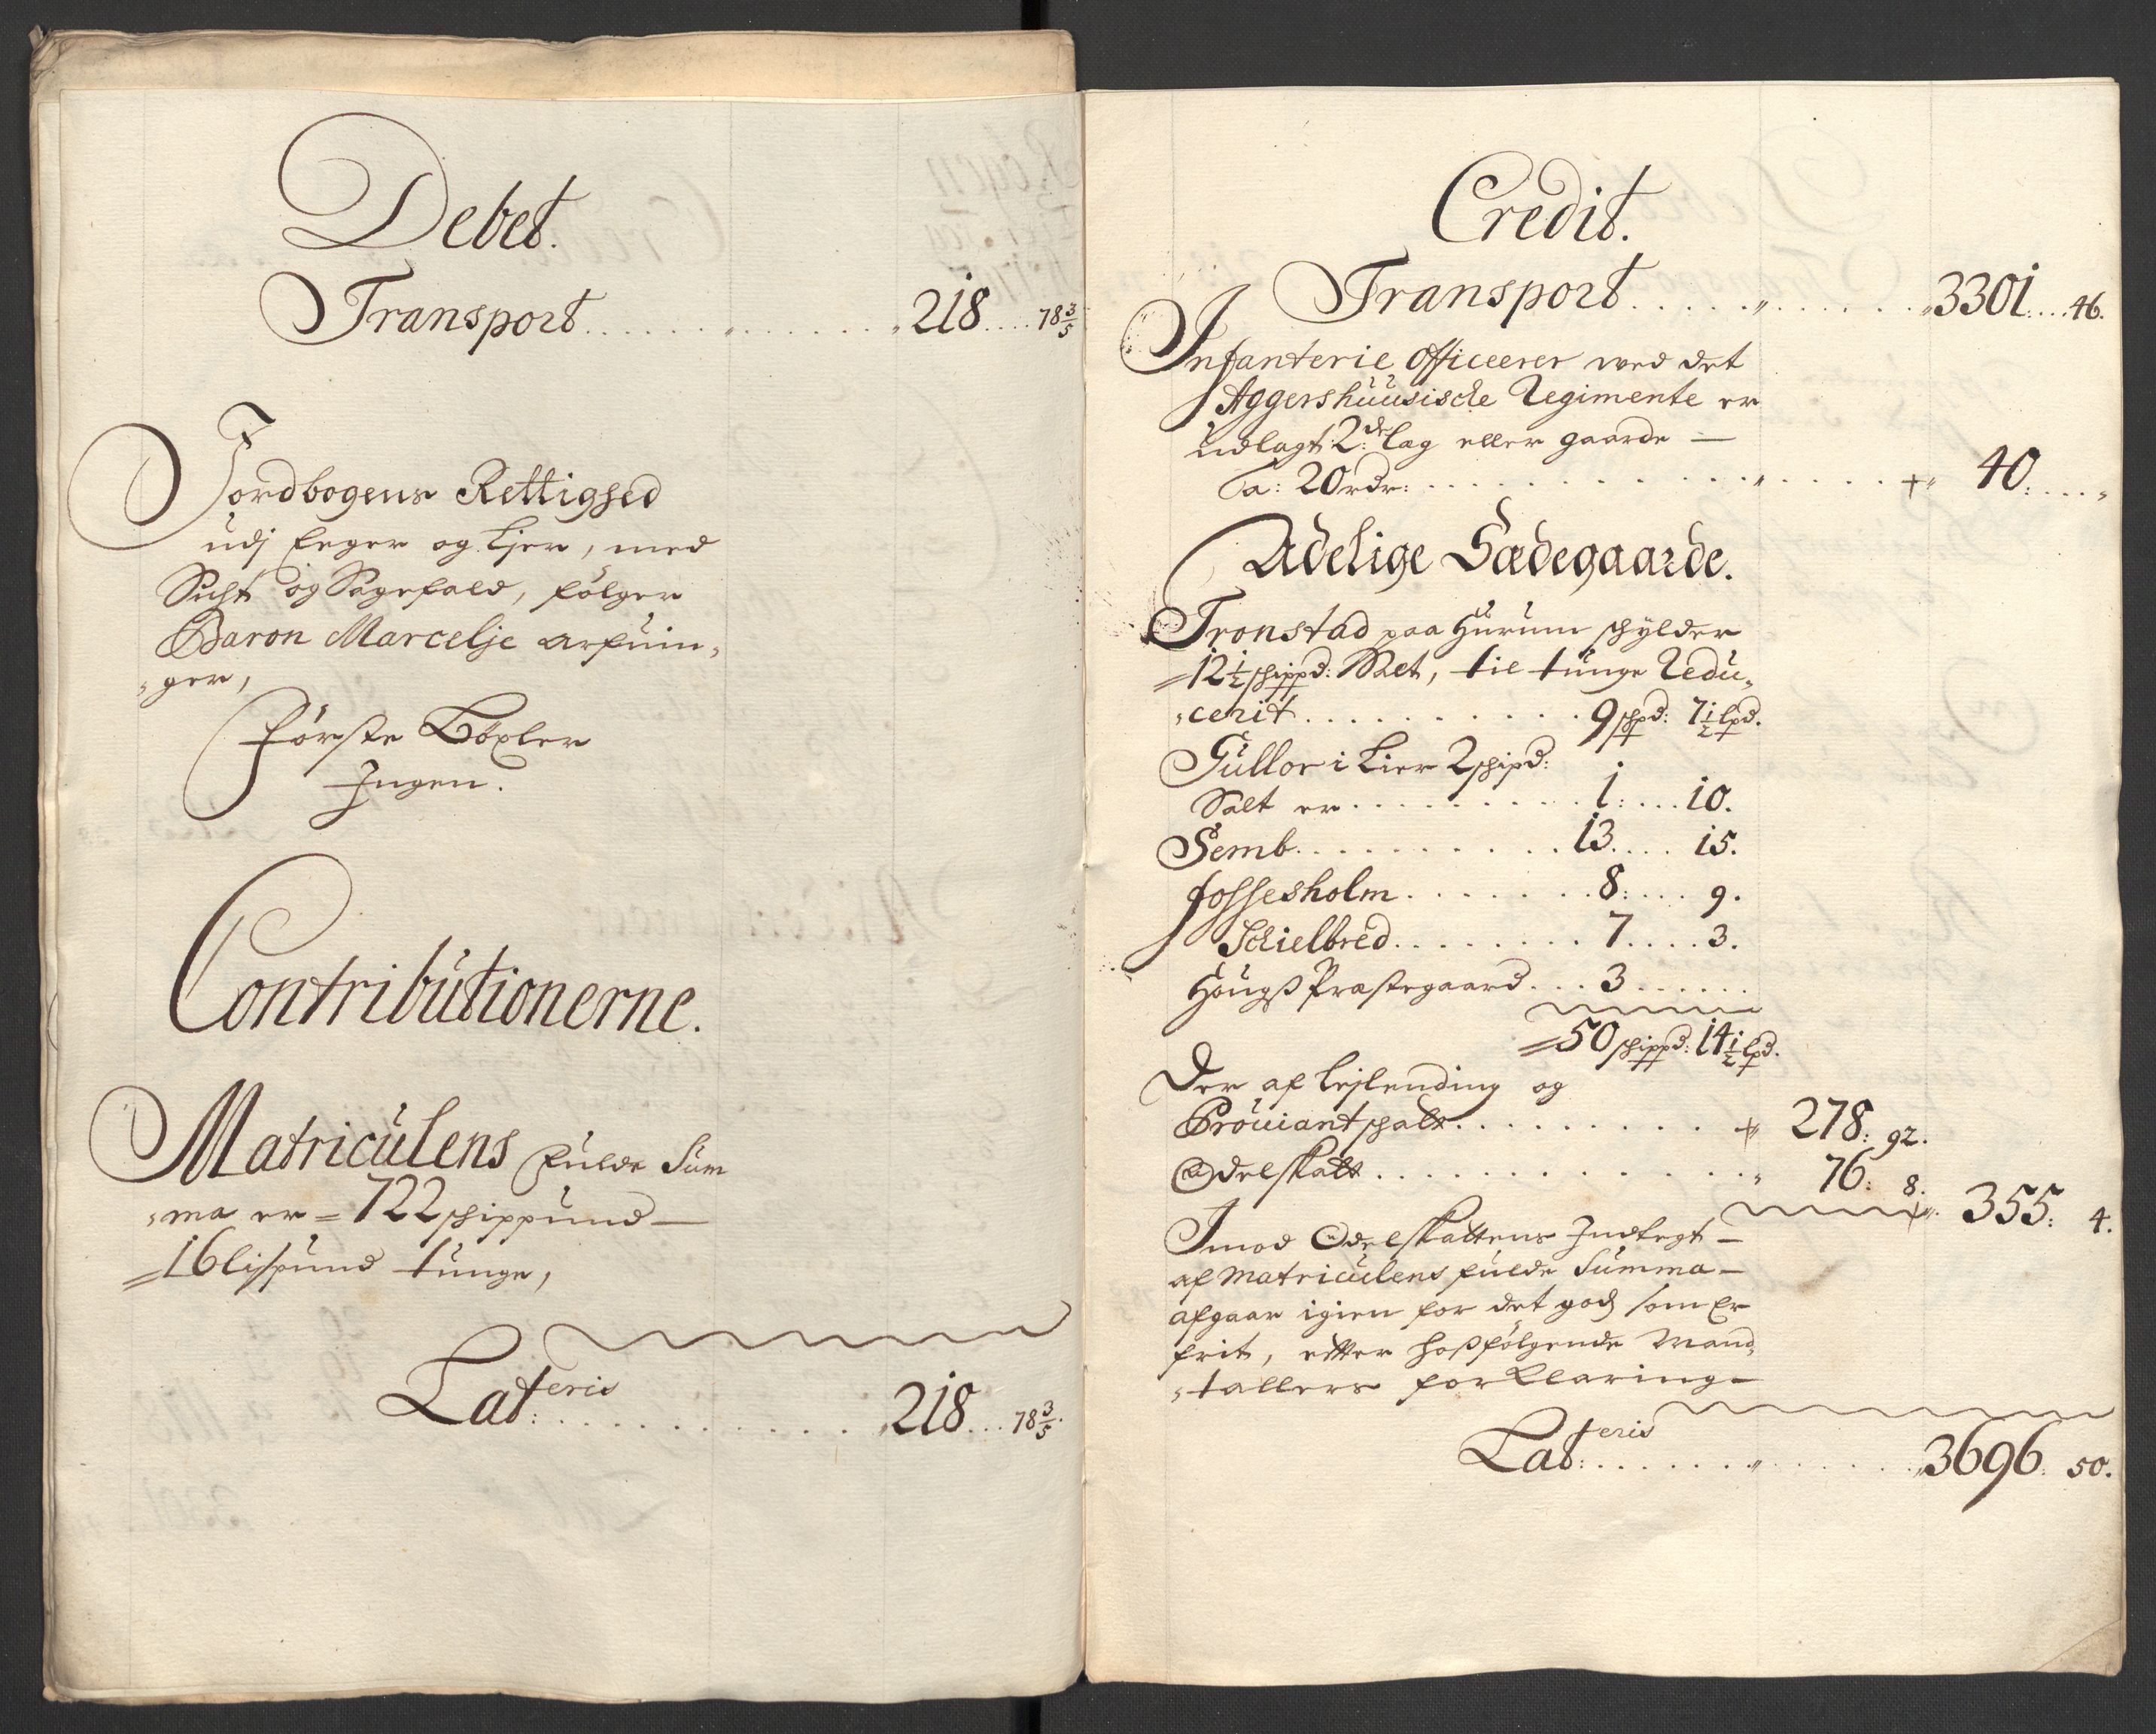 Debet.
Transport . . . . . . . . . . . 218 . . . . 78 3/5
Jordbogens Rettighed
udj Eeger og Ljer, med
Sicht og Sagefald, følger
Baron Marcelje arfuin,
,ger,
Første Böxler
Jngen.
Contributionerne.
Matriculens fulde Sum
,ma er = 722 schippund —
=16 lispund tunge,
Lat:eris . . . . . . . . . . . 218 . . . 78 3/5.
Credit.
Transport . . . . . " . . . . . . 3301 . . . . 46.
Infanterie Officeerer wed det
Aggershuusische Regimente er
udlagt 2:de læg eller gaarde —
a: 20 rdr: . . . . . . . . . . . . " . . . . . + 40: . . . . "
Adelige Sædegaarde.
Tronstad paa Hurum schylder
=12 1/2 schippd: Salt, til tunge Redu,
,cerit . . . . . . . . . . 9 schpd: 7 1/2 lpd.
Gullor i Lier 2 schipd:
Salt er . . . . . . . . . . 1: . . . . 10.
Semb . . . . . . . . . . . 13. . . . 15.
Fossesholm . . . . . . . 8: . . . . 9.
Schielbred . . . . . . . . 7. . . . 3.
Hougs Præstegaard . . . 3 . . . . . .
=50 schippd: 14 1/2 lpd.
Der af Lejlending og
Proviantschatt . . . . . . . . . . + 278: 92.
Odelskatt . . . . . . . . . . . . . . 76: 8.
+ 355: 4.
Imod Odelskattens Indtegt —
af Matriculens fulde Summa —
afgaar igien for det gods som Er
frit, efter hosfølgende Mand,
,tallers forklaring —
Lat:eris . . . . . . . " . . . . . . 3696: 50.